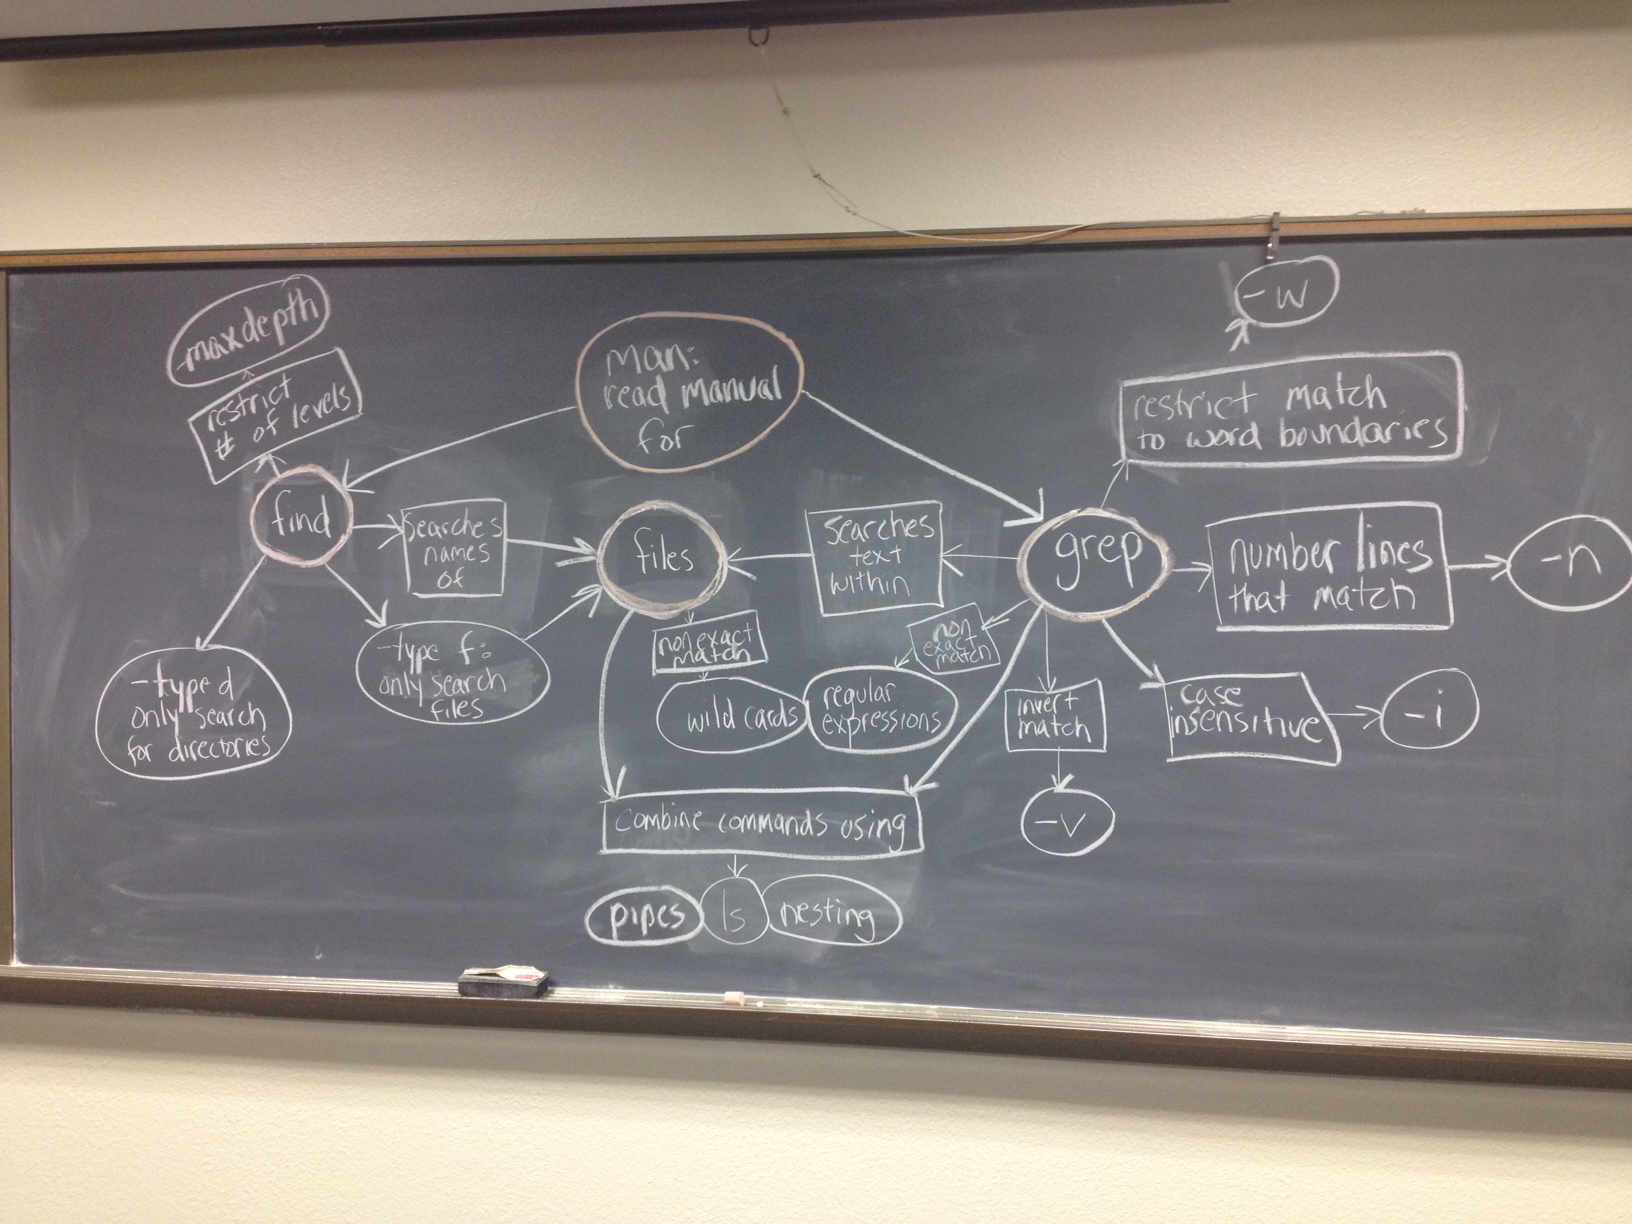 -maxdepth
restrict
# of levels
man:
read manual
for
-w
restrict match
to word boundaries
find
searches
names
of
files
searches
text
within
grep
number lines
that match
-n
-type d
only search
for directories
-type f:
only search
files
non exact
match
wild cards
non
exact
match
regular
expressions
invert
match
-v
case
insensitive
-i
combine commands using
pipes
ls
nesting